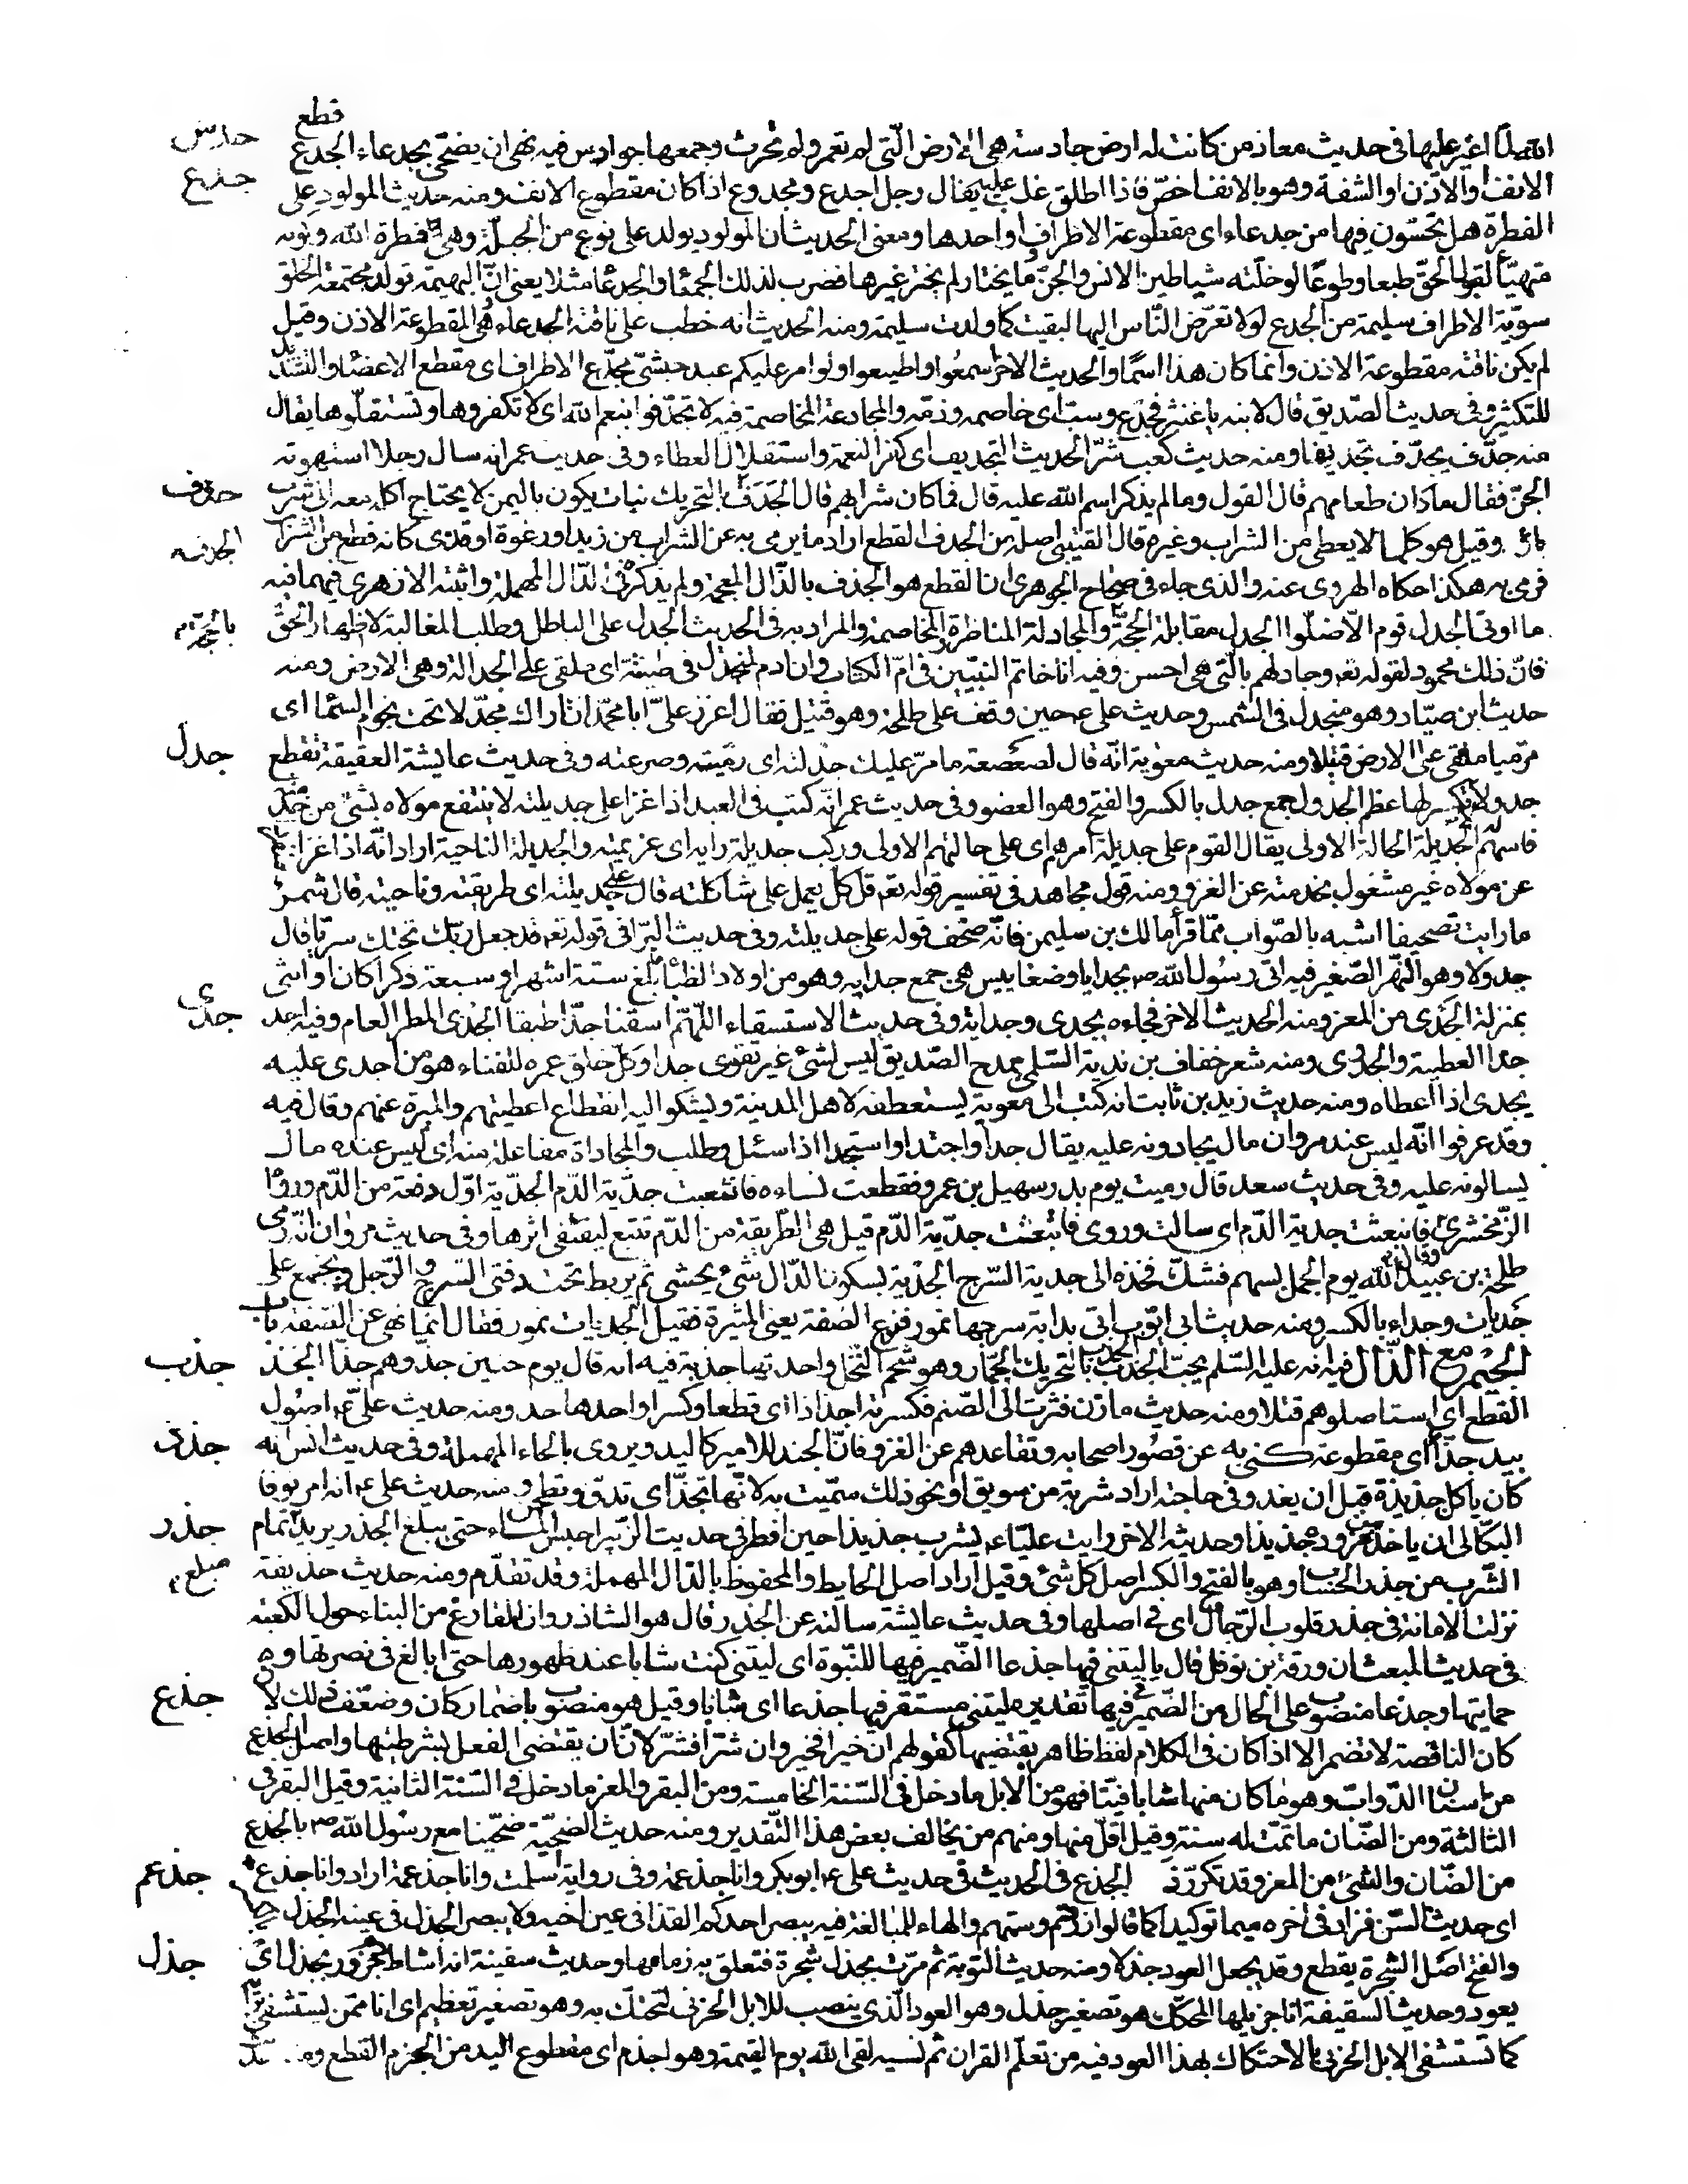 قطع
اغير عليها في حديث معاذ من كانت له ارض جادسة هي الارض التي لم تعمر ولم تحرث وجمعها جوادس فيه نهى ان يضحى بجدعاء الجدع
حدس
جدع
الانف او الاذن او الشفة وهو بالانف اخصّ فاذا اطلق غلب عليه يقال رجل اجدع ومجدوع اذا كان مقطوع الانف ومنه حديث المولود على
الفطرة هل تحسّون فيها من جدعاء اى مقطوعة الاطراف او احدها ومعنى الحديث ان المولود يولد على نوع من الجبلّة وهي فطرة الله وكونه
متهيّأ لقبول الحقّ طبعا وطوعًا لو خلّته شياطين الانس والجنّ وما يختار لم يختر غيرها فضرب لذلك الجمعاء والجدعاء مثلا يعني انّ البهيمة تولد مجتمعة الخلق
سويّة الاطراف سليمة من الجدع لولا تعرّض النّاس اليها لبقيت كما ولدت سليمة ومنه الحديث انه خطب على ناقته الجدعاء هي المقطوعة الاذن وقيل
لم يكن ناقته مقطوعة الاذن وانما كان هذا اسمًا والحديث الاخر اسمعوا واطيعوا ولو امر عليكم عبد حبشي مجدّع الاطراف اى مقطع الاعضاء والتشديد
للتكثير وفي حديث الصّديق قال لابنه يا غنثر فجدّع وسبّ اى خاصمه وذمّه والمجادعة المخاصمة فيه لا تجدّفوا بنعم الله اى لا تكفروها وتستقلّوها يقال
منه جدّف يجدّف تجديفا ومنه حديث كعب شرّ الحديث التجديف اى كفر النعمة واستقلال العطاء وفي حديث عمر انه سال رجلا استهوته
الجنّ فقال ما كان طعامهم قال الفول وما لم يذكر اسم الله عليه قال فما كان شرابهم قال الجَدَف بالتحريك نبات يكون باليمن لا يحتاج آكله معه الى شرب
حدف
ماء وقيل هو كلما لا يغطى من الشراب وغيره قال القتيبى اصله من الجدف القطع اراد ما يرمى به عن الشراب من زبد او رغوة او قذى كانه قطع من الشراب
فرمى به هكذا حكاه الهروى عنه والذي جاء في صحاح الجوهرى ان القطع هو الجذف بالذّال المعجمة ولم يذكره في الدّال المهملة واثبته الازهرى فيهما فيه
ما اوتى الجدل قوم الّا ضلّوا الجدل مقابلة الحجّة بالحجّة والمجادلة المناظرة والمخاصمة والمراد به في الحديث الجدل على الباطل وطلب المغالبة لا اظهار الحقّ
فانّ ذلك محمود لقوله تعه وجادلهم بالّتى هي احسن وفيه انا خاتم النبيّين في امّ الكتاب وان ادم لمنجدل في طينته اى ملقى على الجدالة وهي الارض ومنه
حديث ابن صيّاد وهو منجدل في الشمس وحديث على ع حين وقف على طلحة وهو قتيل فقال اعزز علىّ ابا محمّد ان اراك مجدّلا تحت نجوم السّماء اى
مرميا ملقى على الارض قتيلا ومنه حديث معوية انّه قال لصعصعة ما مرّ عليك جدّلته اى رميته وصرعته وفي حديث عايشة العقيقة تقطع
جدل
جدولا لا تكسر لها عظم الجدول جمع جدل بالكسر والفتح وهو العضو وفي حديث عمر انّه كتب في العبد اذا غزا على جديلته لا ينتفع مولاه بشئ من خدمته
فاسهم له الجديلة الحالة الاولى يقال القوم على جديلة امرهم اى على حالتهم الاولى وركب جديلة رايه اى عزيمته والجديلة الناحية اراد انّه اذا غزا
عن مولاه غير مشغول بخدمته عن الغزو ومنه قول مجاهد في تفسير قوله تعه قل كلّ يعمل على شاكلته قال على جديلته اى طريقته وناحيته قال شمر
ما رايت تصحيفا اشبه بالصّواب ممّا قرأ مالك بن سليمن فانّه صحّف قوله على جديلته وفي حديث البرّاء في قوله تعه قد جعل ربّك تحتك سريّا قال
جدولا وهو النّهر الصّغير فيه اتى رسول الله ص بجدايا وضغابيس هي جمع جداية وهو من اولاد الظّباء ما بلغ ستة اشهر او سبعة ذكرا كان او انثى
بمنزلة الجَدى من المعز ومنه الحديث الاخر فجاءه بجدى وجداية وفي حديث الاستسقاء اللّهمّ اسقنا جدّا طبقا الجدى المطر العام ومنه اخذ
جدى
جدا العطيّة والجدوى ومنه شعر خفاف بن ندبة السّلمى يمدح الصّديق ليس لشئ غير تقوى جدا وكلّ خلق عمره للفناء هو من اجدى عليه
يجدى اذا اعطاه ومنه حديث زيد بن ثابت انه كتب الى معوية يستعطفه لاهل المدينة ويشكو اليه انقطاع اعطيتهم والميرة عنهم وقال فيه
وقد عرفوا انّه ليس عند مروان مال يجادونه عليه يقال جدا واجتدا واستجدا اذا سئل وطلب والمجاداة مفاعلة منه اى ليس عنده مال
يسالونه عليه وفي حديث سعد قال رميت يوم بدر سهيل بن عمرو فقطعت نساءه فانثعبت جديّة الدّم الجديّة اوّل دفعة من الدّم ورواه
الزّمخشرى فانبعثت جدية الدّم اى سالت وروى فاتبعت جديّة الدّم قيل هي الطّريقة من الدّم تتبع ليقتفى اثرها وفي حديث مروان انّه رمى
طلحة بن عبيد الله يوم الجمل بسهم فشكّ فخذه الى جدية السّرج الجدْية بسكون الدّال شئ يحشى ثم يربط تحت دفتى السّرج والرّحل ويجمع على
جَدَيات وجداء بالكسر ومنه حديث ابى ايّوب اتى بدابة سرجها نمور فنزع الصّفة يعني الميثرة فقيل الجديات نمور فقال انّما نهى عن الصّفة باب
الجيم مع الذّال فيه انه عليه السّلم يحبّ الجذب الجذب بالتحريك الجمّار وهو شحم النّخل واحدتها جذبة فيه انه قال يوم حنين جذّوهم جذّا الجذ
جذب
القطع اى استاصلوهم قتلا ومنه حديث مازن فثرت الى الصّنم فكسرته اجذاذا اى قطعا وكسرا واحدها جذ ومنه حديث علىّ ع اصول
بيد جذّاء اى مقطوعة كنى به عن قصور اصحابه وتقاعدهم عن الغزو فانّ الجند للامير كاليد ويروى بالحاء المهملة وفي حديث انس انه
جذذ
كان ياكل جذيذة قبل ان يغدو في حاجته اراد شربة من سويق او نحو ذلك سمّيت به لانّها تجذّ اى تدقّ وتطحن ومنه حديث على ع انه امر نوفا
البكّالى ان ياخذ من مزوده جذيذا وحديثه الاخر رايت عليّا ع يشرب جذيذا حين افطر في حديث الزّبير احبس الماء حتى يبلغ الجذر يريد تمام
جذر
مبلغ
الشّرب من جذر الحساب وهو بالفتح والكسر اصل كلّ شئ وقيل اراد اصل الحايط والمحفوظ بالدّال المهملة وقد تقدّم ومنه حديث حذيفة
نزلت الامانة في جذر قلوب الرّجال اى في اصلها وفي حديث عايشة سالته عن الجذر قال هو الشاذروان الفارغ من البناء حول الكعبة
في حديث المبعث ان ورقة بن نوفل قال يا ليتنى فيها جذعا الضّمير فيها للنّبوة اى ليتنى كنت شابا عند ظهورها حتى ابالغ في نصرتها و
حمايتها وجذعا منصوب على الحال من الضّمير في فيها تقديره ليتنى مستقر فيها جذعا اى شابا وقيل هو منصوب باضمار كان وضعّف ذلك لان
جذع
كان الناقصة لا تضمر الا اذا كان في الكلام لفظ ظاهر يقتضيها كقولهم ان خيرا فخير وان شرّا فشرّ لانّ ان يقتضى الفعل بشرطيتها واصل الجذع
من اسنان الدّواب وهو ما كان منها شابا فتيّا فهو من الابل ما دخل في السّنة الخامسة ومن البقر والمعز ما دخل في السّنة الثانية وقيل البقر في
الثالثة ومن الضّان ما تمّت له سنة وقيل اقلّ منها ومنهم من يخالف بعض هذا التّقدير ومنه حديث الضحيّة ضحّينا مع رسول الله ص بالجذع
من الضّان والثنى من المعز وقد تكرّر ذكر الجذع في الحديث في حديث على ع اسلم ابوبكر وانا جذعمة وفي رواية اسلمت وانا جذعمة اراد وانا جذع
جذعم
اى حديث السّن فزاد في اخره ميما توكيدا كما قالوا زرقم وستهم والهاء للمبالغة فيه يبصر احدكم القذا في عين اخيه ولا يبصر الجذل في عينه الجذل
والفتح اصل الشّجرة يقطع وقد يجعل العود جذلا ومنه حديث التّوبة ثم مرّت بجذل شجرة فتعلّق به زمامها وحديث سفينة انه اشاط دم جزور بجذل اى
جذل
بعود وحديث السقيفة انا جذيلها المحكّك هو تصغير جذل وهو العود الّذي ينصب للابل الجربى لتحتكّ به وهو تصغير تعظيم اى انا ممّن يستشفى
كما تستشفى الابل الجربى بالاحتكاك بهذا العود فيه من تعلّم القران ثم نسيه لقى الله يوم القيمة وهو اجذم اى مقطوع اليد من الجذم القطع